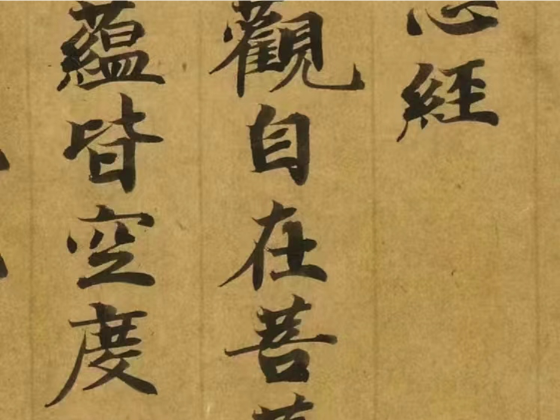 心經
觀自在菩
蘊皆空度